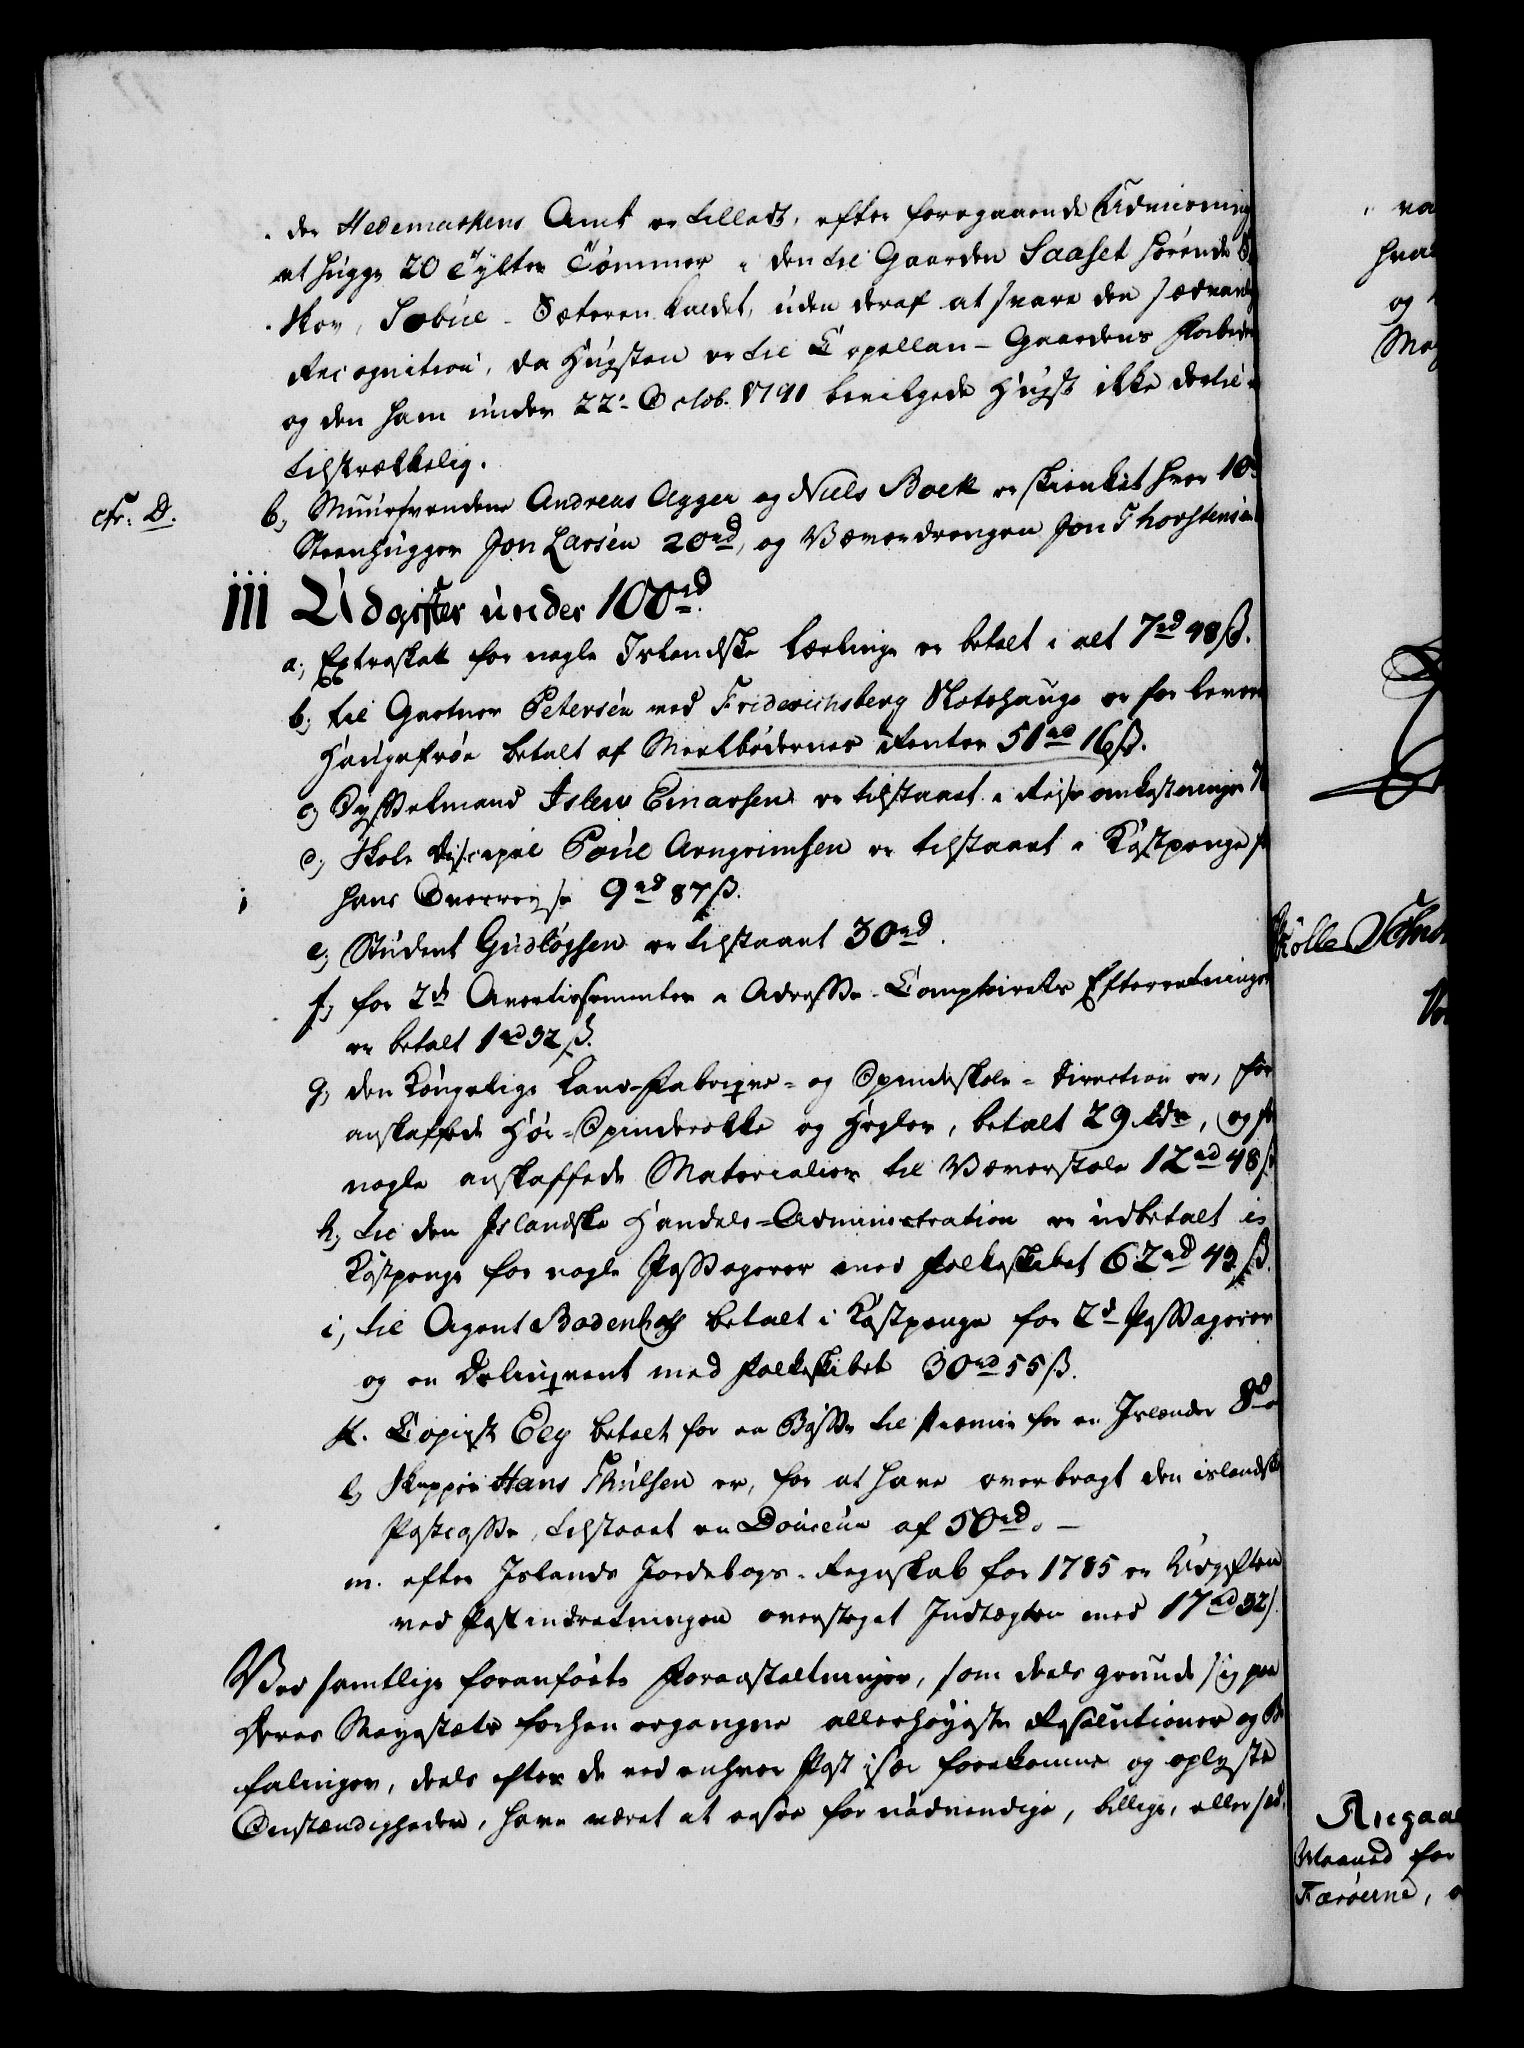 der Hedemarkens Amt er tilladt, efter foregaaende Udviisning
at hugge 20 Tylter Tömmer i den til Gaarden Saaset hörende
Skov, Sæteren kaldet, uden deraf at svare den sædvanlig
Recognition, da Hugsten er til Capellan-Gaardens
og den ham under 22de Octob. 1791 bevilgede Hugst ikke dertil er
tilstrækkelig.
cfr: D. b, Muursvendene Andreas Agger og Niels Boek er skienket hver 10rd
Steenhugger Jon Larsen 20rd, og Væverdrengen Jon Thorstensen
iii Udgifter under 100rd.
a, Extraskatt for nogle Islandske Lærlinge er betalt i alt 7rd 48ß.
b, til Gartner Petersen ved Friderichsberg Slotshauge er for
Haugefröe betalt af Meelbödernes Renter 51rd 16ß.
c, Sysselmand Isleu Einarsen er tilstaaet i Reise omkostninger
d, Skole Discipel Poul Arngrimsen er tilstaaet i Kostpenge
hans Overreise 9rd 87ß.
e, Student Gudlögsen er tilstaaet 30rd.
f, for 2de Avertissementer i Adresse-Comptoirets Efterretninger
er betalt 1rd 32ß.
g, den Kongelige Land-Fabriqve- og Spindeskole-Direction er, for
anskaffede Hör-Spinderokke og Hegler, betalt 29 rdr, og for
nogle anskaffede Materialier til Væverstole 12rd 48ß
h, til den Islandske Handels-Administration er udbetalt i
Kostpenge for nogle Passagerer med Falkeskibet 62rd 49ß.
i, til Agent Bodenhoff betalt i Kostpenge for 2de Passagerer
og en Delinqvent med Falkeskibet 30rd 55ß.
k. Copiist Eeg betalt for en Bösse til Præmie for en Islænder 8rd
l, Skipper Hans Thulsen er, for at have overbragt den islandske
Postcasse, tilstaaet en Douceur af 50rd. —
m. efter Islands Jordebogs-Regnskab for 1785 er Udgiften
ved Postindretningen oversteget Indtægten med 17rd 32ß.
Ved samtlige foranförte Foranstaltninger, som deels grunde sig paa
Deres Majestæts forhen ergangne allerhöyeste Resolutioner og Be-
falinger, deels efter de ved enhver Post især forekomne og oplyste
Omstændigheder, have været at ansee for nödvendige, billige, eller
Mag
Kölle
Angaa
Maaned for
Færöerne,